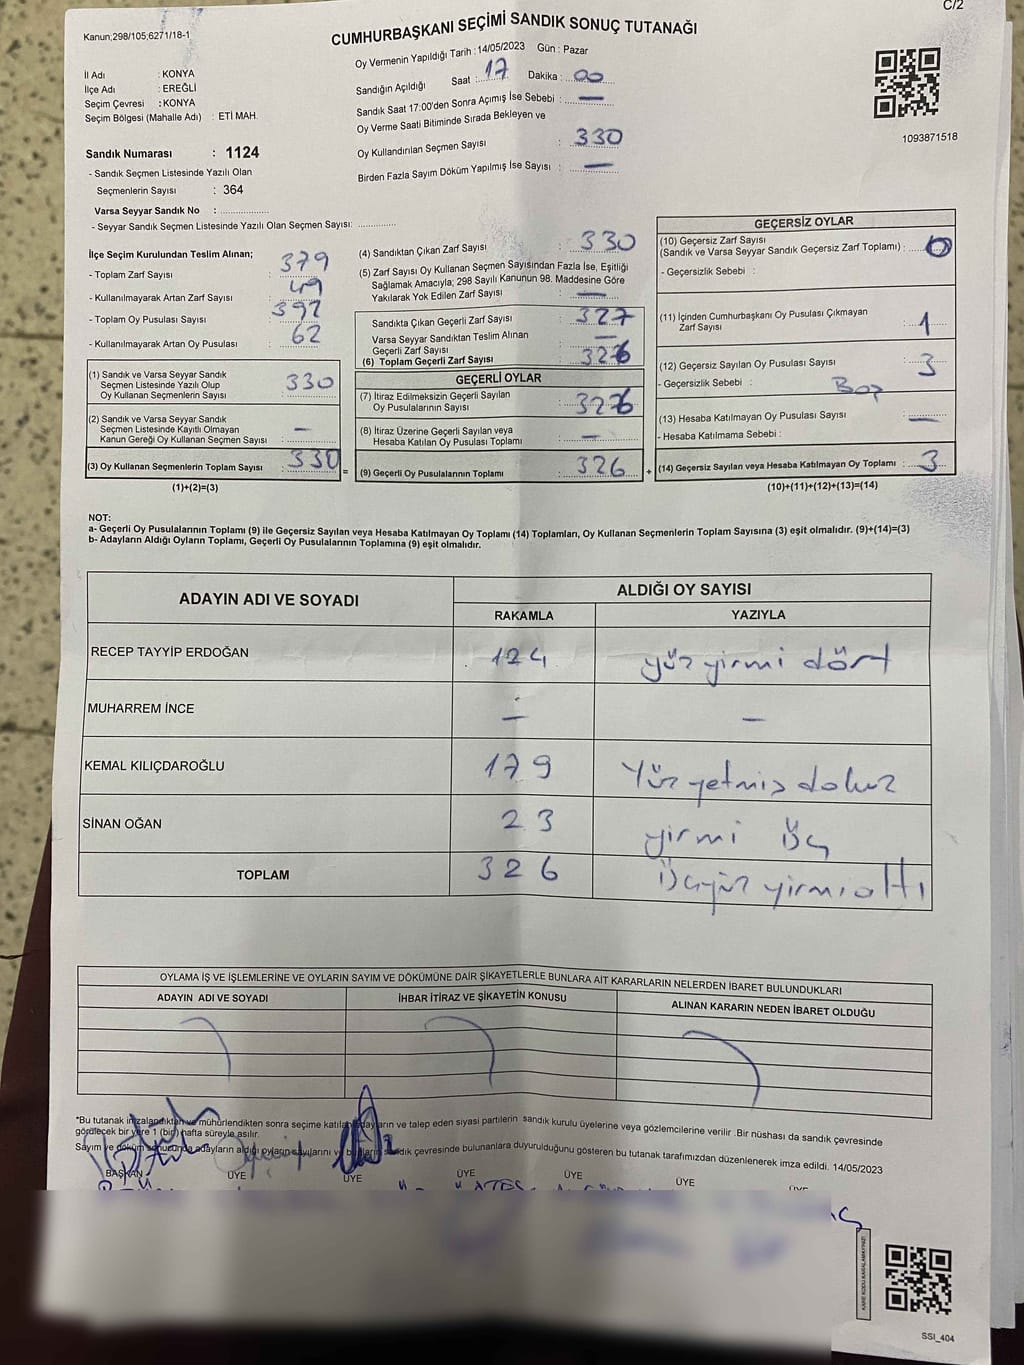 C/2
Kanun;298/105;6271/18-1
CUMHURBAŞKANI SEÇİMİ SANDIK SONUÇ TUTANAĞI
Oy Vermenin Yapıldığı Tarih : 14/05/2023 Gün : Pazar
İl Adı : KONYA
İlçe Adı : EREĞLİ
Seçim Çevresi : KONYA
Seçim Bölgesi (Mahalle Adı) : ETİ MAH.
Sandığın Açıldığı Saat : 17 Dakika : 00
Sandık Saat 17:00'den Sonra Açımış İse Sebebi : —
Oy Verme Saati Bitiminde Sırada Bekleyen ve
Oy Kullandırılan Seçmen Sayısı : 330
Birden Fazla Sayım Döküm Yapılmış İse Sayısı : —
1093871518
Sandık Numarası : 1124
- Sandık Seçmen Listesinde Yazılı Olan
Seçmenlerin Sayısı : 364
Varsa Seyyar Sandık No : ....................
- Seyyar Sandık Seçmen Listesinde Yazılı Olan Seçmen Sayısı: ...............
İlçe Seçim Kurulundan Teslim Alınan;
- Toplam Zarf Sayısı 379
- Kullanılmayarak Artan Zarf Sayısı 49
- Toplam Oy Pusulası Sayısı 392
- Kullanılmayarak Artan Oy Pusulası 62
(1) Sandık ve Varsa Seyyar Sandık
Seçmen Listesinde Yazılı Olup
Oy Kullanan Seçmenlerin Sayısı : 330
(2) Sandık ve Varsa Seyyar Sandık
Seçmen Listesinde Kayıtlı Olmayan
Kanun Gereği Oy Kullanan Seçmen Sayısı : —
(3) Oy Kullanan Seçmenlerin Toplam Sayısı : 330
(1)+(2)=(3)
=
(4) Sandıktan Çıkan Zarf Sayısı : 330
(5) Zarf Sayısı Oy Kullanan Seçmen Sayısından Fazla İse, Eşitliği
Sağlamak Amacıyla; 298 Sayılı Kanunun 98. Maddesine Göre
Yakılarak Yok Edilen Zarf Sayısı : —
Sandıkta Çıkan Geçerli Zarf Sayısı : 327
Varsa Seyyar Sandıktan Teslim Alınan
Geçerli Zarf Sayısı : —
(6) Toplam Geçerli Zarf Sayısı : 326
GEÇERLİ OYLAR
(7) İtiraz Edilmeksizin Geçerli Sayılan
Oy Pusulalarının Sayısı : 326
(8) İtiraz Üzerine Geçerli Sayılan veya
Hesaba Katılan Oy Pusulası Toplamı : —
(9) Geçerli Oy Pusulalarının Toplamı : 326
+
GEÇERSİZ OYLAR
(10) Geçersiz Zarf Sayısı
(Sandık ve Varsa Seyyar Sandık Geçersiz Zarf Toplamı) : 0
- Geçersizlik Sebebi :
(11) İçinden Cumhurbaşkanı Oy Pusulası Çıkmayan
Zarf Sayısı : 1
(12) Geçersiz Sayılan Oy Pusulası Sayısı : 3
- Geçersizlik Sebebi : Boş
(13) Hesaba Katılmayan Oy Pusulası Sayısı : —
- Hesaba Katılmama Sebebi :
(14) Geçersiz Sayılan veya Hesaba Katılmayan Oy Toplamı : 3
(10)+(11)+(12)+(13)=(14)
NOT:
a- Geçerli Oy Pusulalarının Toplamı (9) ile Geçersiz Sayılan veya Hesaba Katılmayan Oy Toplamı (14) Toplamları, Oy Kullanan Seçmenlerin Toplam Sayısına (3) eşit olmalıdır. (9)+(14)=(3)
b- Adayların Aldığı Oyların Toplamı, Geçerli Oy Pusulalarının Toplamına (9) eşit olmalıdır.
ADAYIN ADI VE SOYADI ALDIĞI OY SAYISI
RAKAMLA YAZIYLA
RECEP TAYYİP ERDOĞAN 124 yüz yirmi dört
MUHARREM İNCE — —
KEMAL KILIÇDAROĞLU 179 Yüz yetmiş dokuz
SİNAN OĞAN 23 yirmi üç
TOPLAM 326 Üçyüz yirmi altı
OYLAMA İŞ VE İŞLEMLERİNE VE OYLARIN SAYIM VE DÖKÜMÜNE DAİR ŞİKAYETLERLE BUNLARA AİT KARARLARIN NELERDEN İBARET BULUNDUKLARI
ADAYIN ADI VE SOYADI İHBAR İTİRAZ VE ŞİKAYETİN KONUSU ALINAN KARARIN NEDEN İBARET OLDUĞU
*Bu tutanak imzalandıktan ve mühürlendikten sonra seçime katılan adayların ve talep eden siyasi partilerin sandık kurulu üyelerine veya gözlemcilerine verilir .Bir nüshası da sandık çevresinde
görülecek bir yere 1 (bir) hafta süreyle asılır.
Sayım ve döküm sonucunda adayların aldığı oyların sayılarını ve bunların sandık çevresinde bulunanlara duyurulduğunu gösteren bu tutanak tarafımızdan düzenlenerek imza edildi. 14/05/2023
BAŞKAN ÜYE ÜYE ÜYE ÜYE ÜYE ÜYE
SSI_404